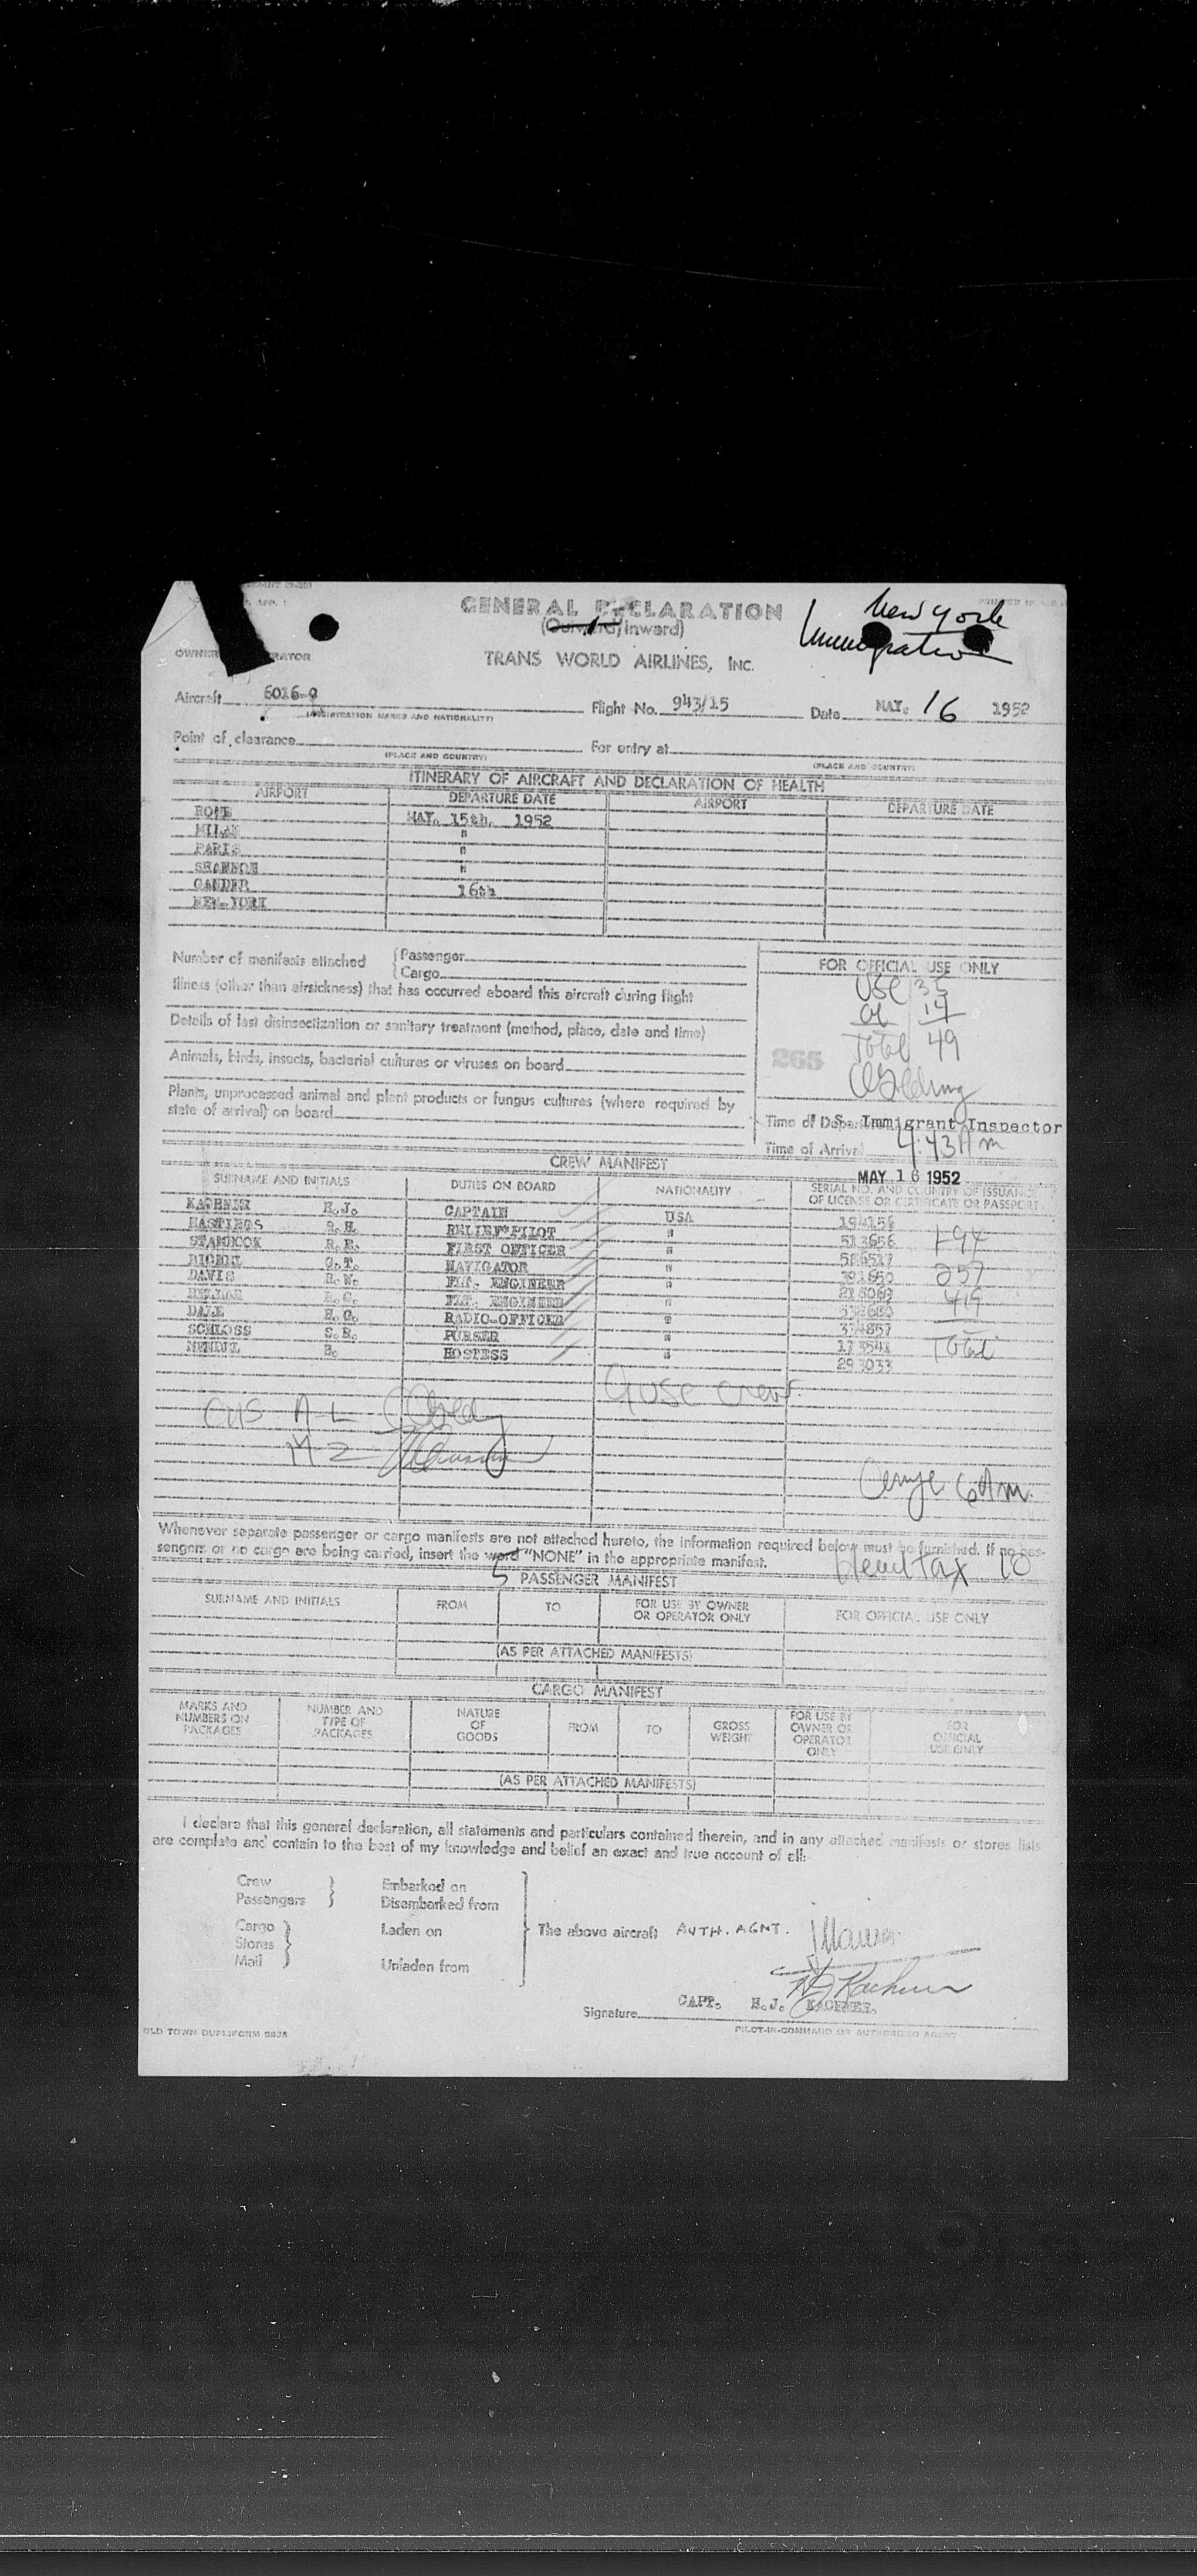 GENERAL DECLARATION
New York
Immigration
(Outward/Inward)
OWNER
TRANS WORLD AIRLINES, INC.
Aircraft 6016-9 Flight No. 943/15 Date MAY. 16 1952
(REGISTRATION MARKS AND NATIONALITY)
Point of clearance For entry at
(PLACE AND COUNTRY) (PLACE AND COUNTRY)
ITINERARY OF AIRCRAFT AND DECLARATION OF HEALTH
AIRPORT DEPARTURE DATE AIRPORT DEPARTURE DATE
ROME MAY. 15th. 1952
MILAN "
PARIS "
SHANNON "
GANDER 16th
NEW-YORK
Number of manifests attached Passenger
Cargo
FOR OFFICIAL USE ONLY
Illness (other than airsickness) that has occurred aboard this aircraft during flight
USC 35
al 14
Total 49
Details of last disinsectization or sanitary treatment (method, place, date and time)
265
Animals, birds, insects, bacterial cultures or viruses on board
Plants, unprocessed animal and plant products or fungus cultures (where required by
state of arrival) on board
Time of Depar S. Immigrant Inspector
Time of Arrival 4:43 Am
CREW MANIFEST
MAY 16 1952
SURNAME AND INITIALS DUTIES ON BOARD NATIONALITY SERIAL NO. AND COUNTRY OF ISSUANCE
OF LICENSE OR CERTIFICATE OR PASSPORT
KACHNER H.J. CAPTAIN USA 194156
HASTINGS RELIEF PILOT " 513656
R.R. FIRST OFFICER " 586517
NAVIGATOR "
DAVIS R.W. FLT. ENGINEER "
FLT. ENGINEER "
DALE H.G. RADIO-OFFICER " 374857
SCHLOSS S.R. PURSER " 173541
HOSTESS " 293033
257
419
Total
9 USC crew
A-L
M Z
6 Am.
Whenever separate passenger or cargo manifests are not attached hereto, the information required below must be furnished. If no pas-
sengers or no cargo are being carried, insert the word "NONE" in the appropriate manifest.
Head Tax 10
5 PASSENGER MANIFEST
SURNAME AND INITIALS FROM TO FOR USE BY OWNER
OR OPERATOR ONLY FOR OFFICIAL USE ONLY
(AS PER ATTACHED MANIFESTS)
CARGO MANIFEST
MARKS AND
NUMBERS ON
PACKAGES NUMBER AND
TYPE OF
PACKAGES NATURE
OF
GOODS FROM TO GROSS
WEIGHT FOR USE BY
OWNER OR
OPERATOR
ONLY FOR
OFFICIAL
USE ONLY
(AS PER ATTACHED MANIFESTS)
I declare that this general declaration, all statements and particulars contained therein, and in any attached manifests or stores lists
are complete and contain to the best of my knowledge and belief an exact and true account of all:
Crew Embarked on
Passengers Disembarked from
Cargo Laden on The above aircraft AUTH. AGNT.
Stores
Mail Unladen from
Signature CAPT. H.J. KACHNER.
OLD TOWN DUPLIFORM PILOT-IN-COMMAND OR AUTHORIZED AGENT